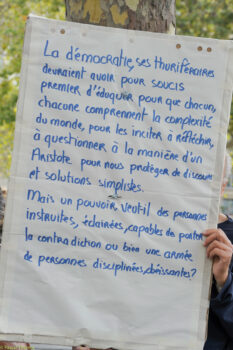 La démocratie, ses thuriféraires
devraient avoir pour soucis
premier d'éduquer pour que chacun,
chacune comprennent la complexité
du monde, pour les inciter à réfléchir,
à questionner à la manière d'un
Aristote pour nous protéger de discours
et solutions simplistes.
Mais un pouvoir, veut il des personnes
instruites, éclairées, capables de porter
la contradiction ou bien une armée
de personnes disciplinées, obéissantes?